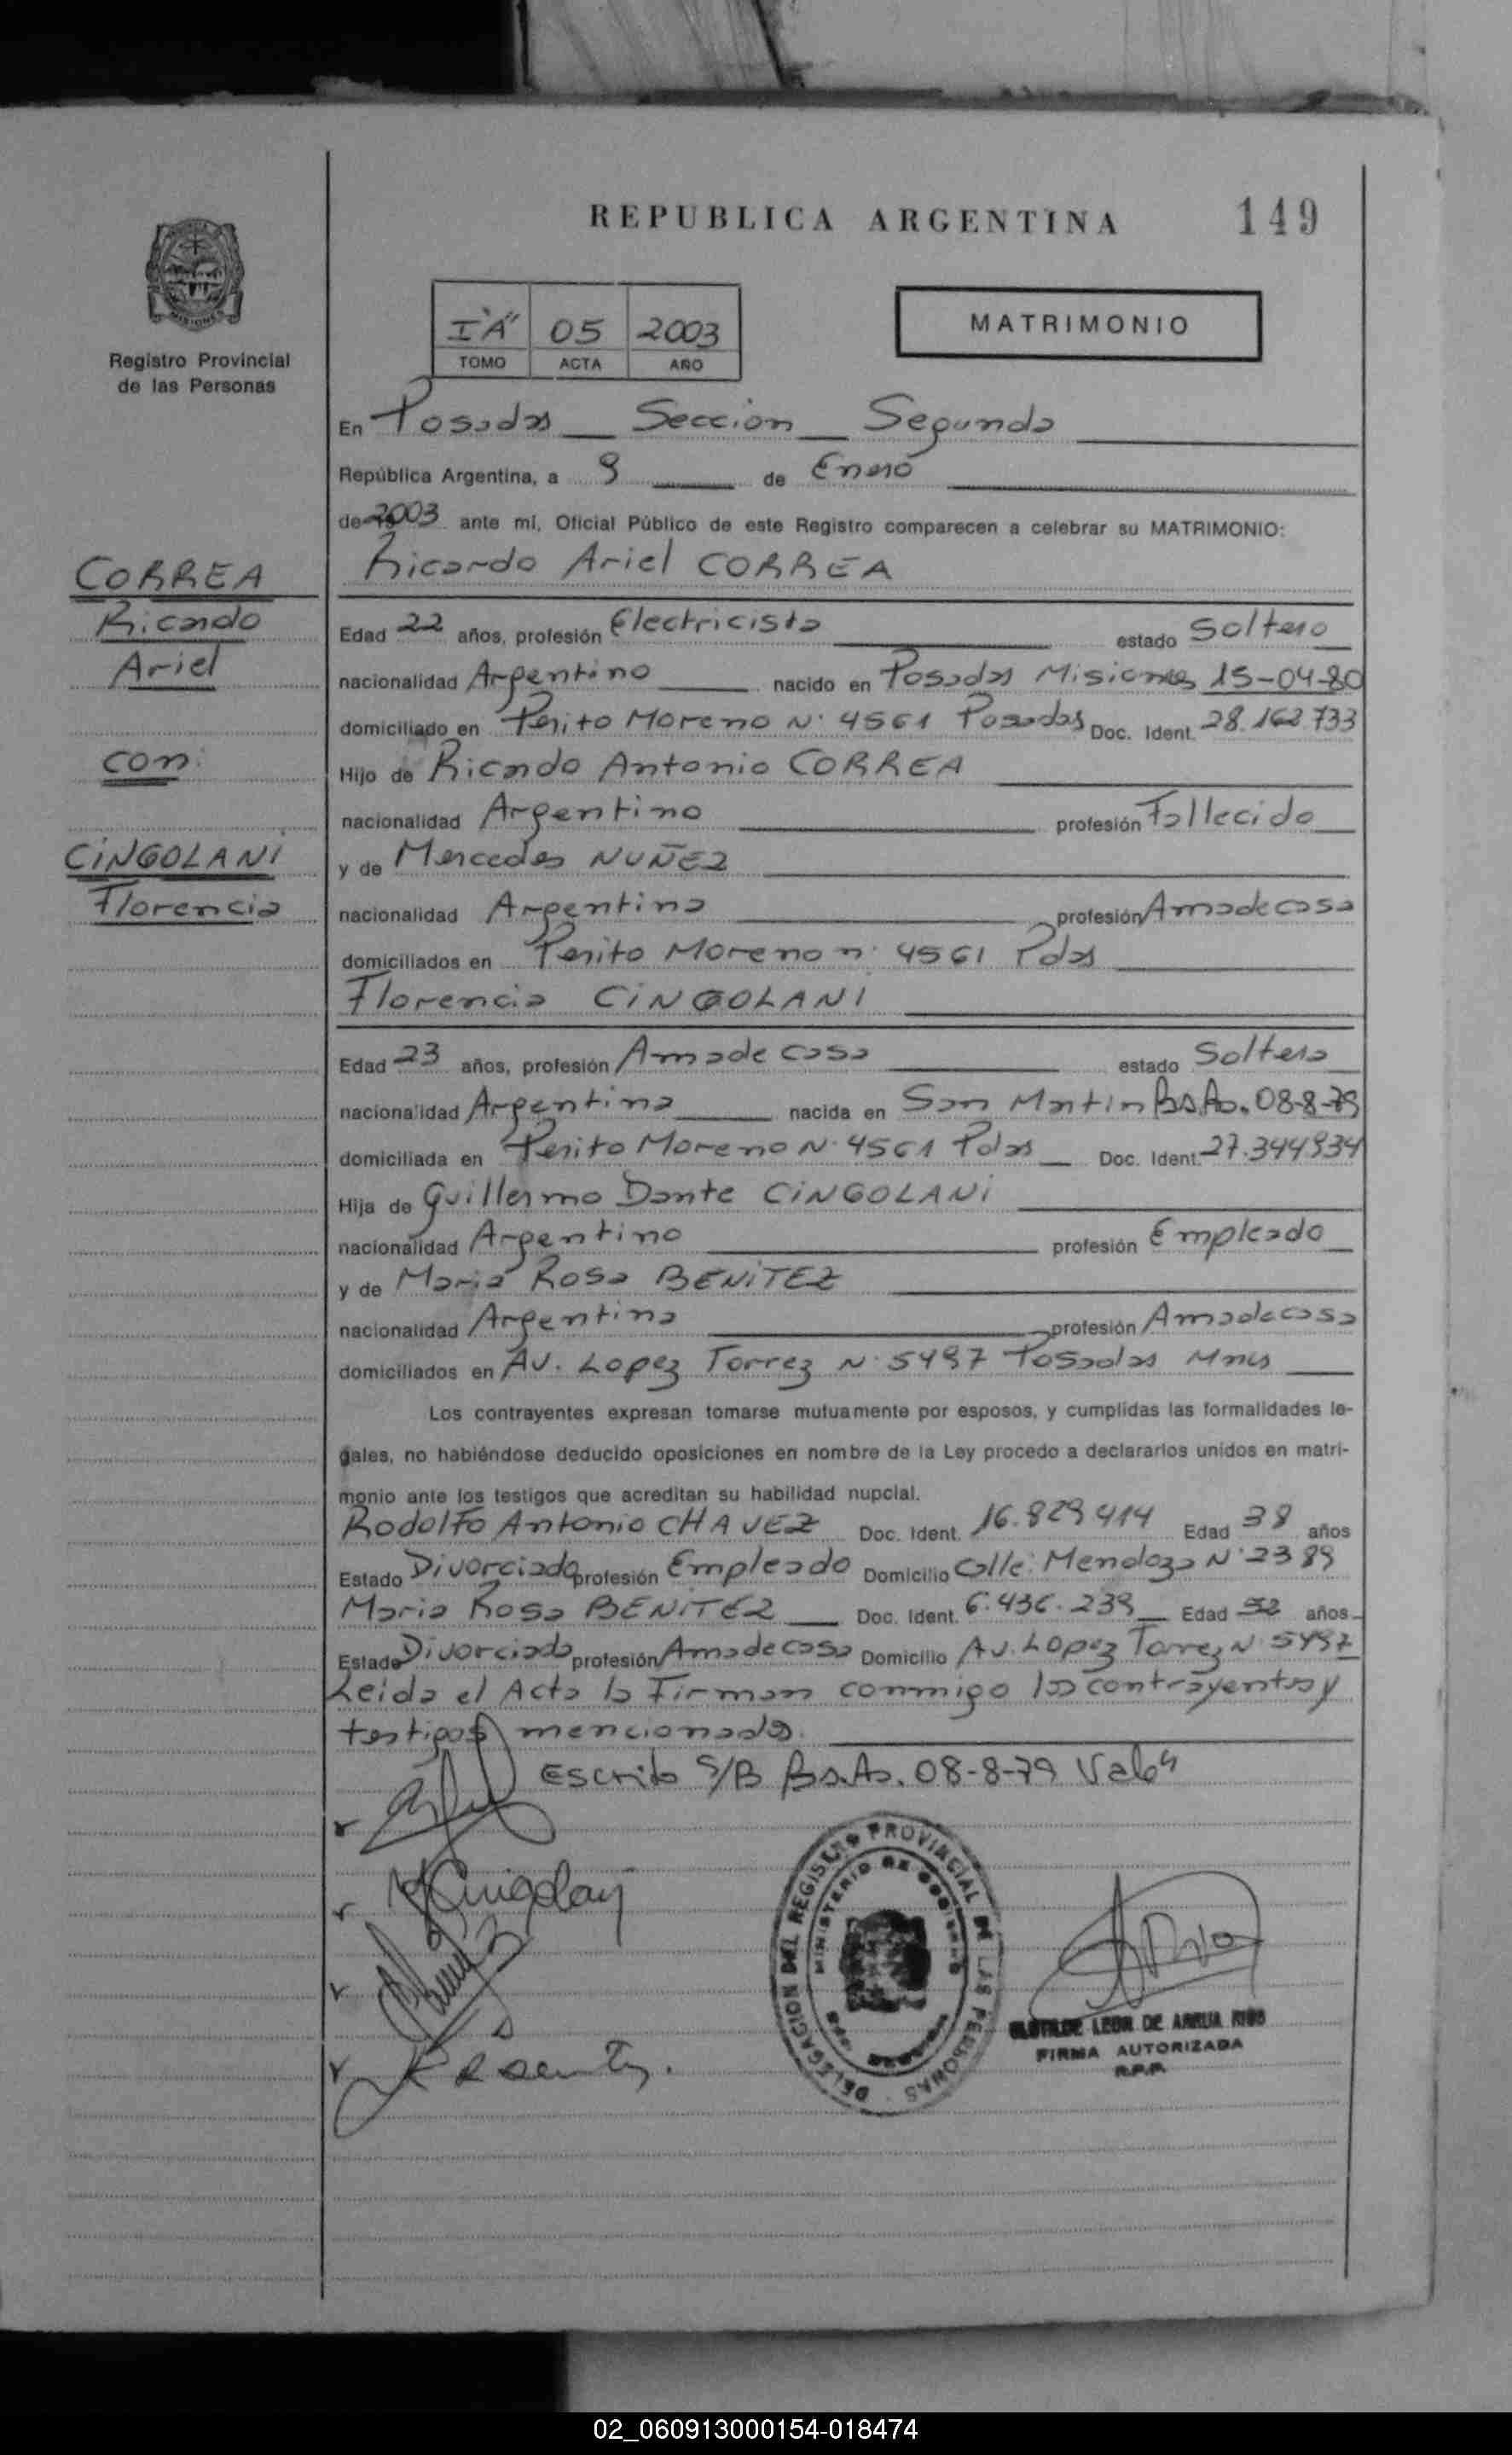 REPUBLICA ARGENTINA 149
MISIONES
Registro Provincial
de las Personas
I "A" 05 2003
TOMO ACTA AÑO
MATRIMONIO
En Posadas Seccion Segunda
República Argentina, a 9 de Enero
de 2003 ante mí, Oficial Público de este Registro comparecen a celebrar su MATRIMONIO:
CORREA
Ricardo
Ariel
con:
CINGOLANI
Florencia
Ricardo Ariel CORREA
Edad 22 años, profesión Electricista estado Soltero
nacionalidad Argentino nacido en Posadas Misiones 15-04-80
domiciliado en Perito Moreno N° 4561 Posadas Doc. Ident. 28.162.733
Hijo de Ricardo Antonio CORREA
nacionalidad Argentino profesión Fallecido
y de Mercedes NUÑEZ
nacionalidad Argentina profesión Ama de casa
domiciliados en Perito Moreno n° 4561 Pdas
Florencia CINGOLANI
Edad 23 años, profesión Ama de casa estado Soltera
nacionalidad Argentina nacida en San Martin Bs.As. 08-8-79
domiciliada en Perito Moreno N° 4561 Pdas Doc. Ident. 27.344934
Hija de Guillermo Dante CINGOLANI
nacionalidad Argentino profesión Empleado
y de Maria Rosa BENITEZ
nacionalidad Argentina profesión Ama de casa
domiciliados en Av. Lopez Torrez N° 5497 Posadas Mnes
Los contrayentes expresan tomarse mutuamente por esposos, y cumplidas las formalidades le-
gales, no habiéndose deducido oposiciones en nombre de la Ley procedo a declararlos unidos en matri-
monio ante los testigos que acreditan su habilidad nupcial.
Rodolfo Antonio CHAVEZ Doc. Ident. 16.829414 Edad 38 años
Estado Divorciado profesión Empleado Domicilio Calle: Mendoza N° 2389
Maria Rosa BENITEZ Doc. Ident. 6.436.239 Edad 52 años
Estado Divorciada profesión Ama de casa Domicilio Av. Lopez Torrez N° 5497
Leida el Acta la Firman conmigo los contrayentes y
testigos mencionados.
Escrito S/B Bs.As. 08-8-79 Vale"
DELEGACION DEL REGISTRO PROVINCIAL DE LAS PERSONAS
MINISTERIO DE GOBIERNO
CLOTILDE LEOR DE ARRUA RIOS
FIRMA AUTORIZADA
R.P.P.
02_060913000154-018474